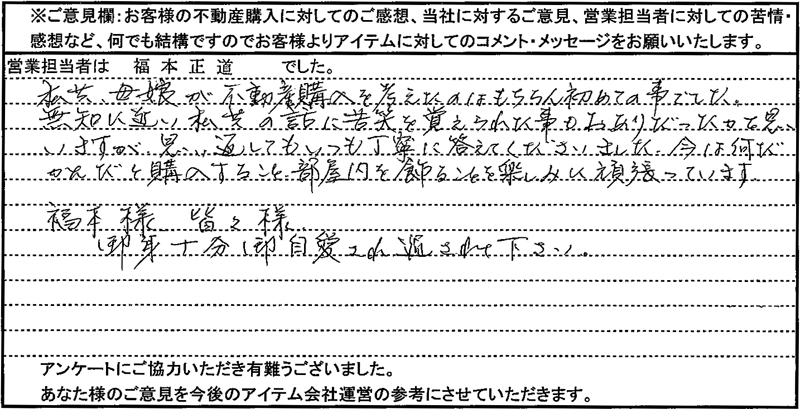 ※ご意見欄：お客様の不動産購入に対してのご感想、当社に対するご意見、営業担当者に対しての苦情・
感想など、何でも結構ですのでお客様よりアイテムに対してのコメント・メッセージをお願いいたします。
営業担当者は 福本正道 でした。
私共、母娘が不動産購入を考えたのはもちろん初めての事でした。
無知に近い私共の話に苦笑を覚えられた事もおありだったかと思
いますが、思い返してもいつも丁寧に答えてくださいました。今は何だ
かんだと購入すること、部屋内を飾ることを楽しみに頑張っています
福本様 皆々様
御身十分御自愛され過されて下さい。
アンケートにご協力いただき有難うございました。
あなた様のご意見を今後のアイテム会社運営の参考にさせていただきます。